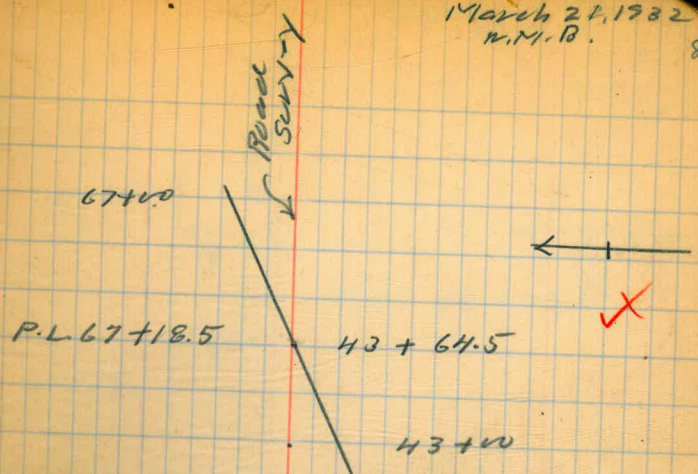 March 21, 1932
N.M.B.
8
Road
Survey
67+00
P.L. 67+18.5
43 + 64.5
43+00